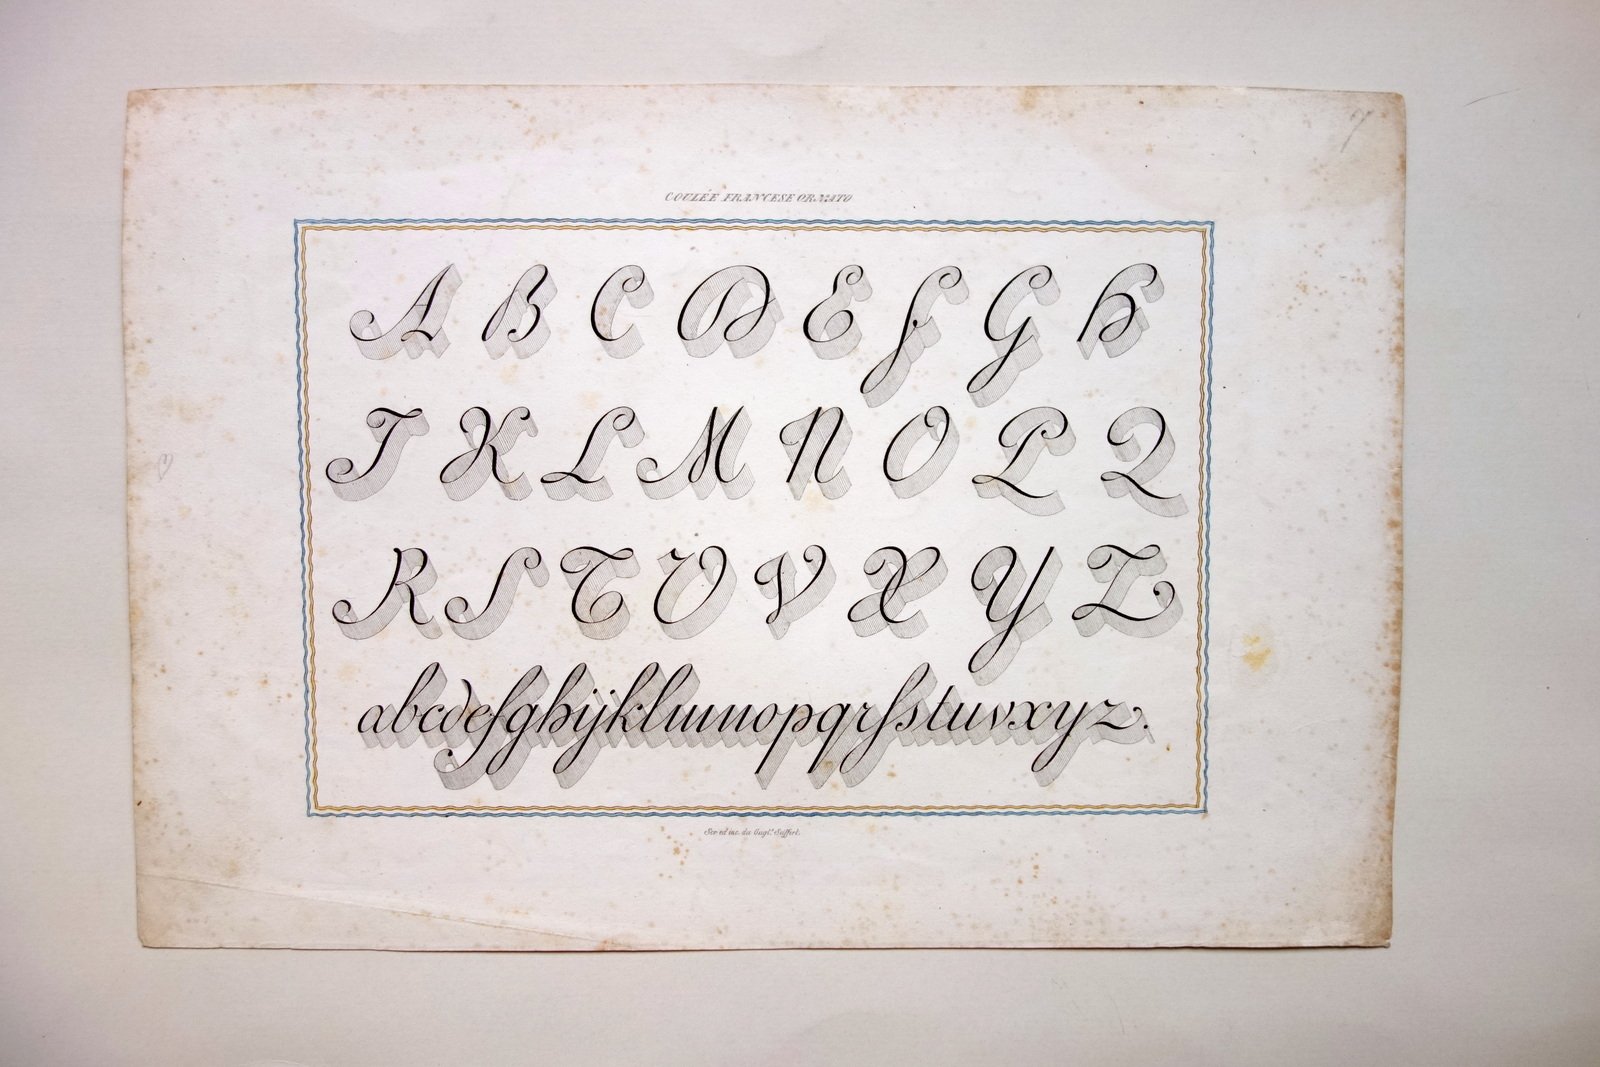 COULÉE FRANCESE ORNATO
A B C D E F G H
I K L M N O P Q
R S T U V X Y Z
abcdefghijklmnopqrſstuvxyz.
Scr. ed inc. da Gugl.º Seiffert.
7